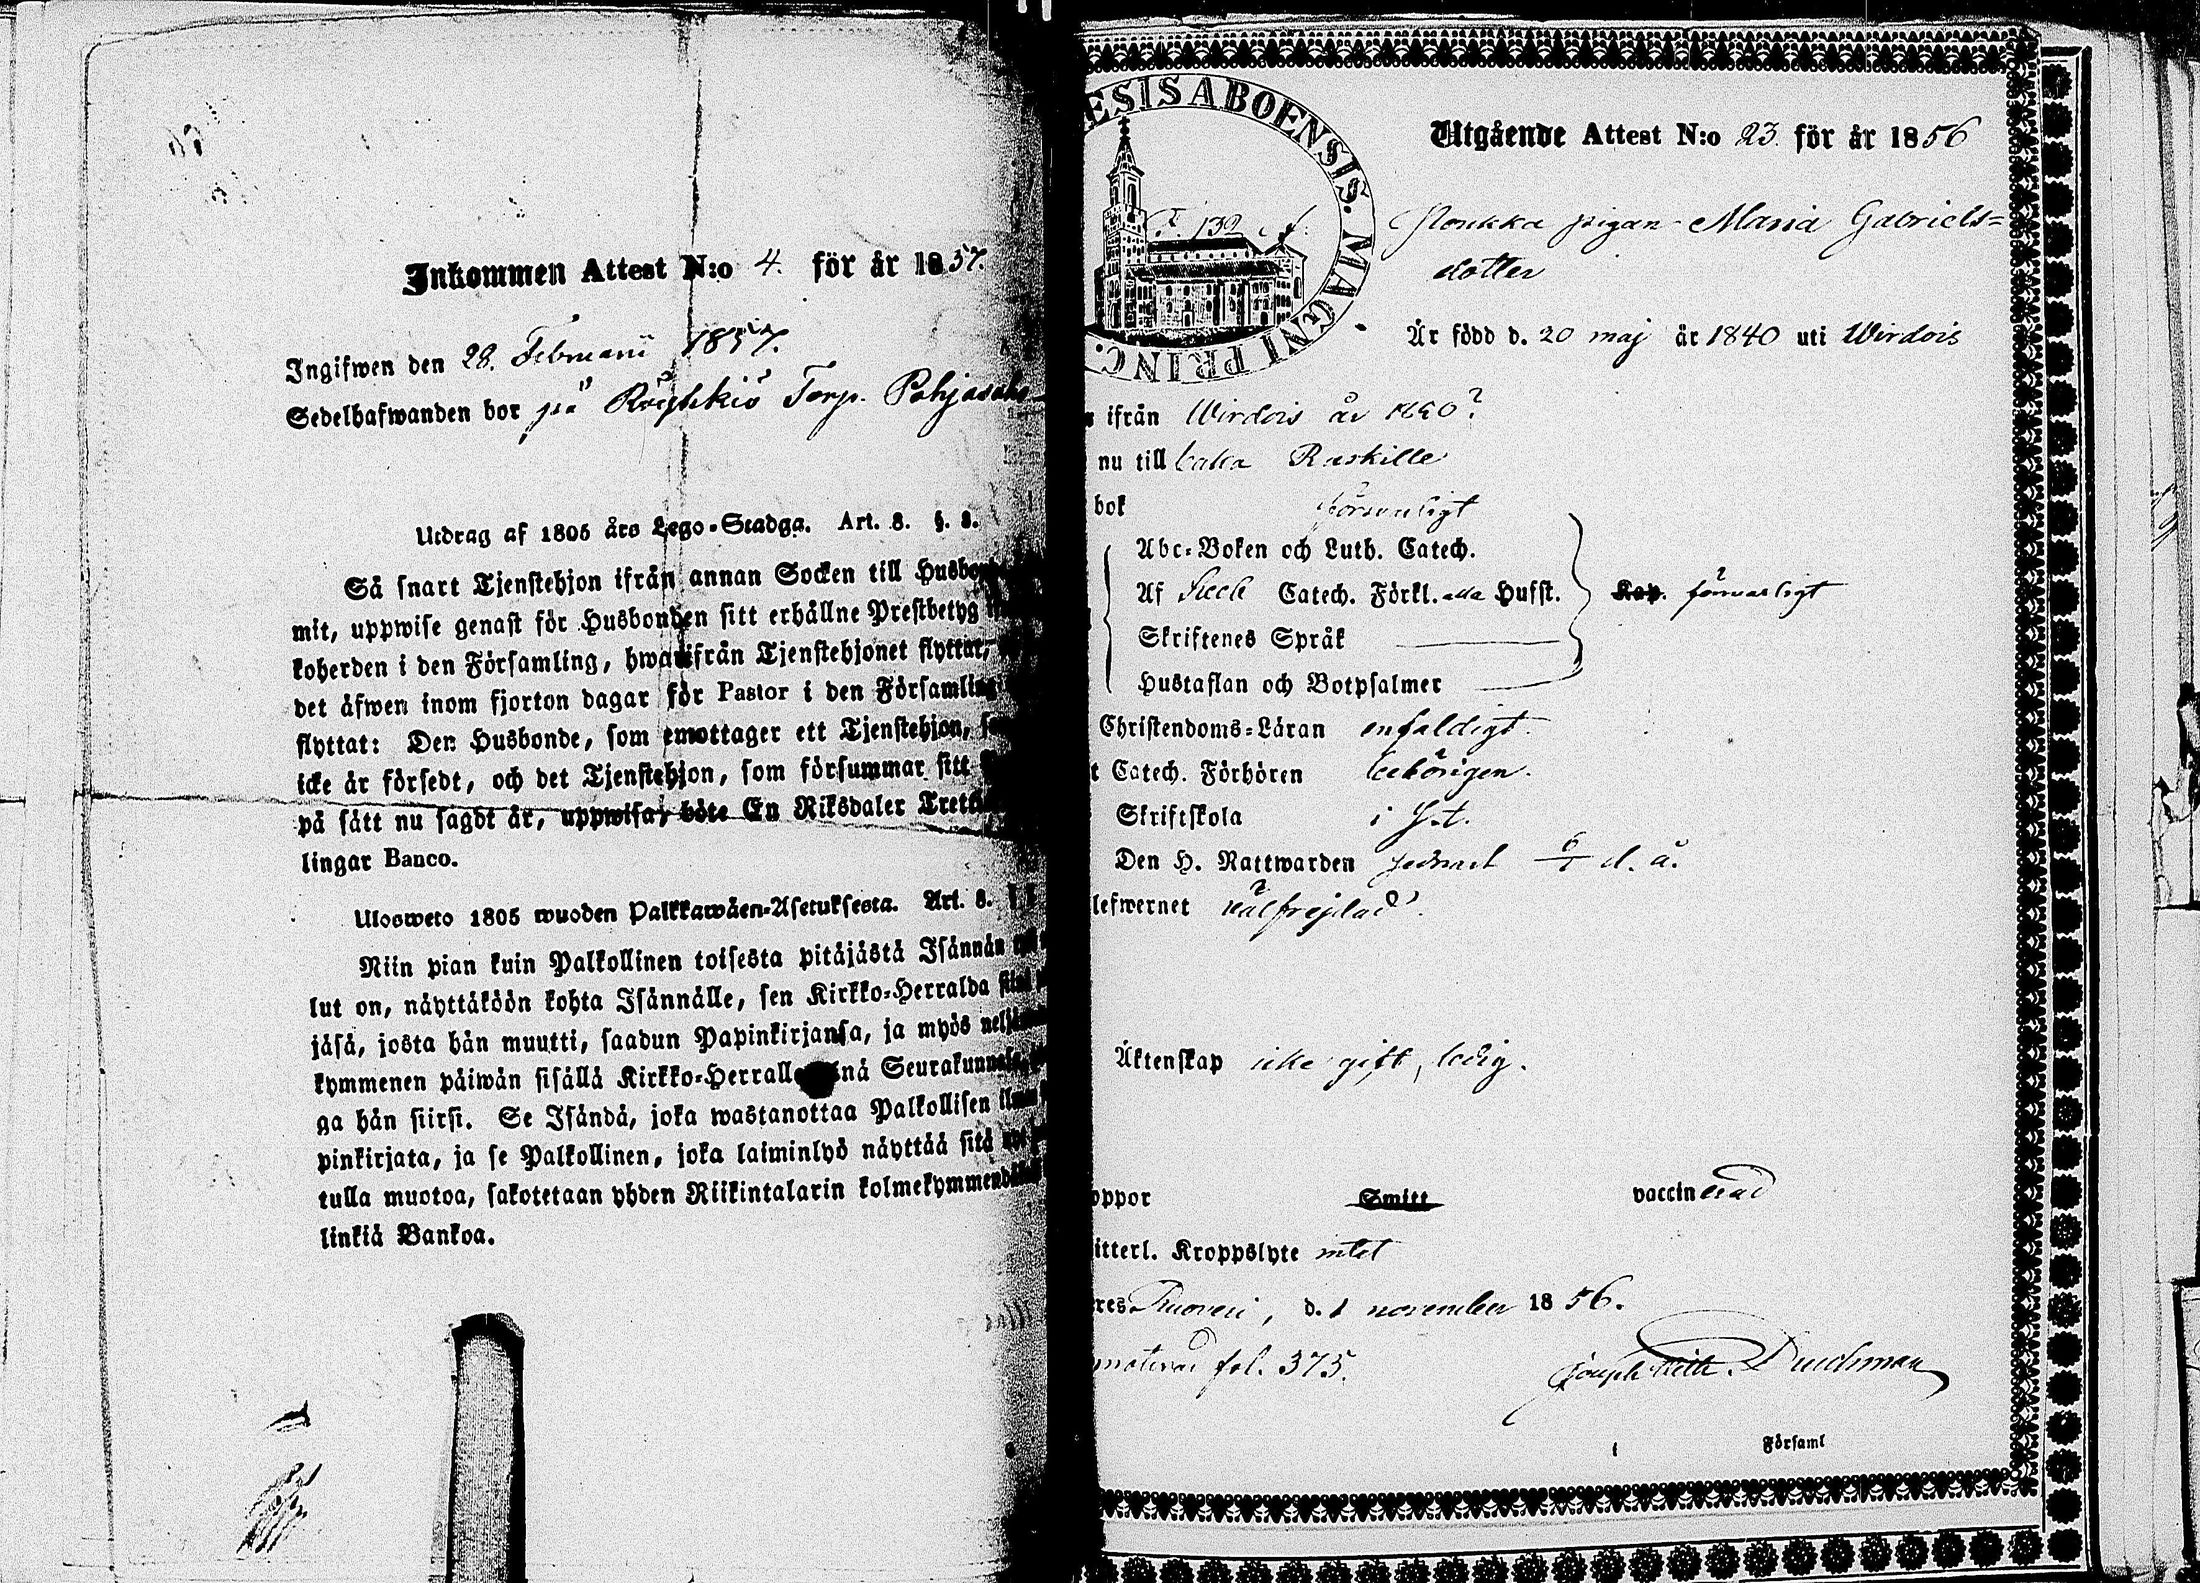 Inkommen Attest N:o 4. för år 1857.
Ingifwen den 28. Februarii 1857.
Sedelhafwanden bor på Röyhkiö Torp. Pohjas
Utdrag af 1805 års Lego-Stadga. Art. 8. §. 8.
Så snart Tjenstehjon ifrån annan Socken till Husbon
mit, uppwise genast för Husbonden sitt erhållne Prestbetyg
koherden i den Församling, hwarifrån Tjenstehjonet flyttat,
det äfwen inom fjorton dagar för Pastor i den Församling
flyttat: Den Husbonde, som emottager ett Tjenstehjon, s
icke är försedt, och det Tjenstehjon, som försummar sitt
på sätt nu sagdt är, uppwisa, böte En Riksdaler Tretti
lingar Banco.
Ulosweto 1805 wuoden Palkkawäen-Asetuksesta. Art. 8.
Niin pian kuin Palkollinen toisesta pitäjästä Isännän
lut on, näyttäköön kohta Isännälle, sen Kirkko-Herralda
jäsä, josta hän muutti, saadun Papinkirjansa, ja myös nelj
kymmenen päiwän sisällä Kirkko-Herralle nä Seurakunna
ga hän siirsi. Se Isändä, joka wastanottaa Palkollisen ilm
pinkirjata, ja se Palkollinen, joka laiminlyö näyttää sitä
tulla muotoa, sakotetaan yhden Riikintalarin kolmekymmend
linkiä Bankoa.
ESIS ABOENSIS. MAGNI PRINC.
F. 132
Utgående Attest N:o 23. för år 1856
pigan Maria Gabriels=
dotter
Är född d. 20 maj år 1840 uti Wirdois
ifrån Wirdois år ?
nu till baka Ruskille
bok försvarligt
Abc-Boken och Luth. Catech.
Af Catech. Förkl. Hufst. Kap. försvarligt
Skriftenes Språk
Hustaflan och Botpsalmer
Christendoms-Läran enfaldigt.
t Catech. Förhören behörigen.
Skriftskola i
Den H. Nattwarden sednast 6/1 d. å.
lefwernet välfrejdad.
Äktenskap icke gift, ledig.
oppor Smitt vaccinerad
itterl. Kroppslyte intet
res Ruovesi, d. 1 november 1856.
fol. 375.
Församl